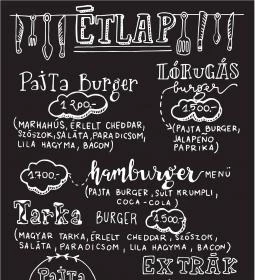 ÉTLAP
PAJTA BURGER
1300.-
(MARHAHÚS, ÉRLELT CHEDDAR,
SZÓSZOK, SALÁTA, PARADICSOM,
LILA HAGYMA, BACON)
LÓRÚGÁS
burger
1.500.-
(PAJTA BURGER,
JALAPENO
PAPRIKA)
1700.- hamburger MENÜ
(PAJTA BURGER, SÜLT KRUMPLI,
COCA-COLA)
Tarka BURGER 1500.-
(MAGYAR TARKA, ÉRLELT CHEDDAR, SZÓSZOK,
SALÁTA, PARADICSOM, LILA HAGYMA, BACON)
PAJTA
EXTRÁK